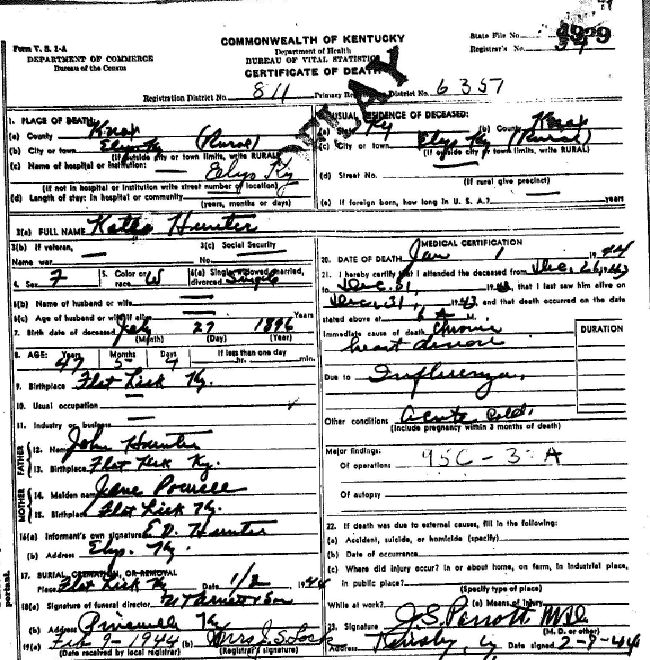 COMMONWEALTH OF KENTUCKY
Form V. S. 1-A
DEPARTMENT OF COMMERCE
Bureau of the Census
Department of Health
BUREAU OF VITAL STATISTICS
CERTIFICATE OF DEATH
State File No.
Registrar's No.
Registration District No. 811
Primary
District No. 6357
1. PLACE OF DEATH:
(a) County Knox
(b) City or town Elys Ky (Rural)
(If outside city or town limits, write RURAL)
(c) Name of hospital or institution: Elys Ky
(If not in hospital or institution write street number or location)
(d) Length of stay: In hospital or community
(years, months or days)
USUAL RESIDENCE OF DECEASED:
Ky (b) County Knox
(c) City or town Elys Ky (Rural)
(If outside city or town limits, write RURAL)
(d) Street No.
(If rural give precinct)
(e) If foreign born, how long in U. S. A.? years
3(a) FULL NAME Hunter
3(b) If veteran,
Name war
3(c) Social Security
No.
4. Sex F
5. Color or race W
6(a) Single, widowed, married, divorced Single
6(b) Name of husband or wife
6(c) Age of husband or wife if alive Years
7. Birth date of deceased July 27 1896
(Month) (Day) (Year)
8. AGE: Years Months Days If less than one day
47 5 4 hr. min.
9. Birthplace Flat Lick Ky.
10. Usual occupation
11. Industry or business
FATHER
12. Name John Hunter
13. Birthplace Flat Lick Ky.
MOTHER
14. Maiden name Jane Powell
15. Birthplace Flat Lick Ky.
16(a) Informant's own signature E.D. Hunter
(b) Address Elys. Ky.
17. BURIAL, CREMATION, OR REMOVAL
Place Flat Lick Ky Date 1/2 1944
18(a) Signature of funeral director
(b) Address
19(a) Feb 9-1944 (b) Mrs J. S. Lock
(Date received by local registrar) (Registrar's signature)
MEDICAL CERTIFICATION
20. DATE OF DEATH Jan 1 1944
21. I hereby certify that I attended the deceased from Dec. 26, 1943
to Dec. 31, 1943, that I last saw him alive on
Dec. 31, 1943 and that death occurred on the date
stated above at 6 A M.
Immediate cause of death Chronic
heart disease
DURATION
Due to Influenza.
Other conditions acute cold.
(Include pregnancy within 3 months of death)
Major findings:
Of operations 95C-33A
Of autopsy
22. If death was due to external causes, fill in the following:
(a) Accident, suicide, or homicide (specify)
(b) Date of occurrence
(c) Where did injury occur? In or about home, on farm, in industrial place,
in public place?
(Specify type of place)
While at work? (e) Means of injury
23. Signature J.S. Parrott M.D.
(M. D. or other)
Address Date signed 2-8-44
portant.